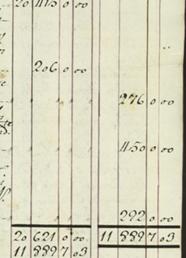 20 415 0 00
206 0 00
276 0 00
450 0 00
292 0 00
20 621 0 00 11 889 7 03
11 889 7 03